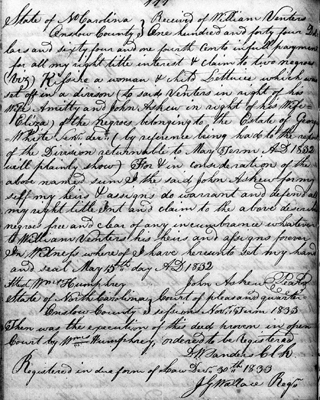 State of N Carolina } Received of William Venters
Onslow County } One hundred and forty four Dol
lars and sixty four and one fourth Cents in full payment
for all my right title interest & claim to two negroes
(viz) a woman & child which was
set off in a division (to said Venters in right of his
Wife and John Askew in right of his Wife
Eliza) of the negroes belonging to the Estate of George
dec. (by reference being had to the report
of the Division returnable to May Term A.D. 1832
will plainly show) For & in consideration of the
above named sum I the said John Askew for my
self my heirs & assigns do warrant and defend all
my right title Int. and claim to the above described
negroes free and clear of any incumbrance whatever
to William Venters his heirs and assigns forever
In Witness whereof I have hereunto set my hand
and seal May 15th day A.D. 1832
Wm Humphrey John Askew Seal
State of North Carolina } Court of pleas and quarter
Onslow County } sessions Nov. Term 1833
Then was the execution of this deed proven in open
Court by Humphrey, ordered to be Registered
Sanders Clk
Registered in due form of Law Dec. 30th 1833
Wallace Regr